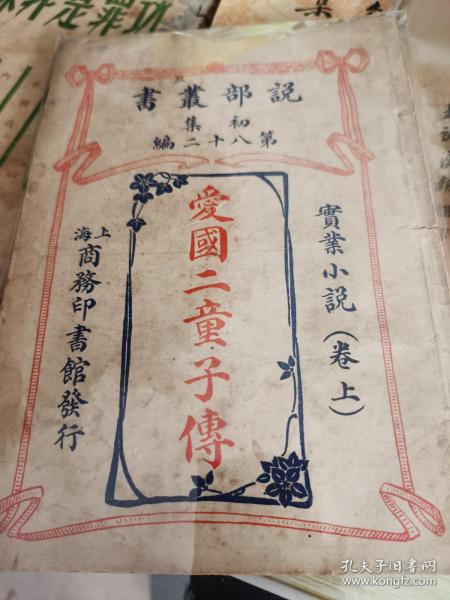 說部叢書
初集
第八十二編
實業小說（卷上）
愛國二童子傳
上海
商務印書館發行
孔夫子旧书网
www.kongfz.com